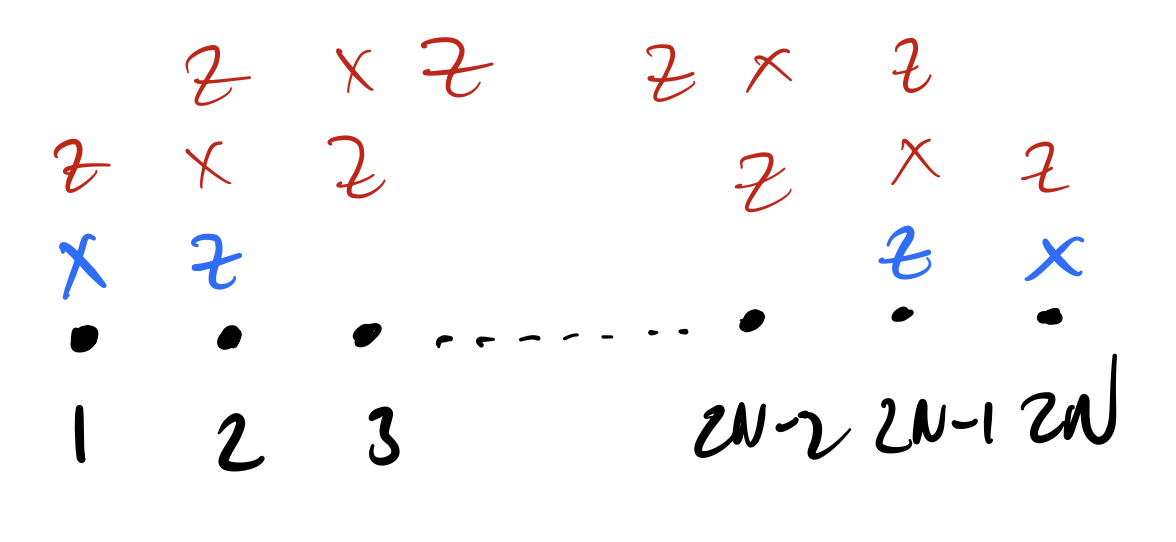 Z X Z Z X Z
Z X Z Z X Z
X Z Z X
1 2 3 2N-2 2N-1 2N